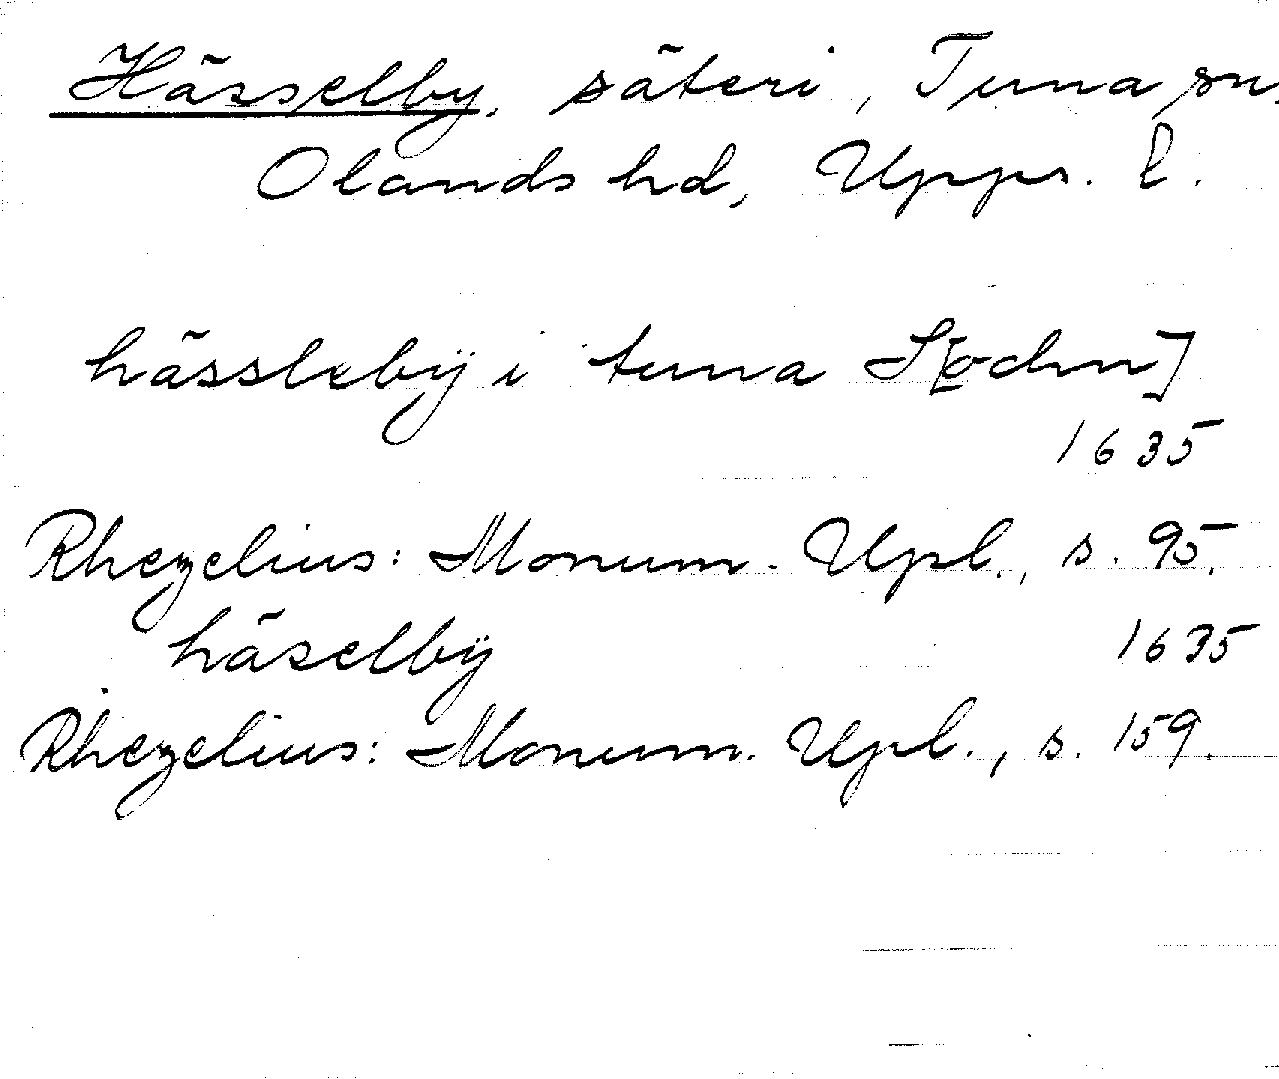 Hässelby, säteri, Tuna sn.
Olands hd, Upps. l.
hässlebÿ i tuna S[ochn]
1635
Rhezelius: Monum. Upl., s. 95.
häselbÿ 1635
Rhezelius: Monum. Upl., s. 159.